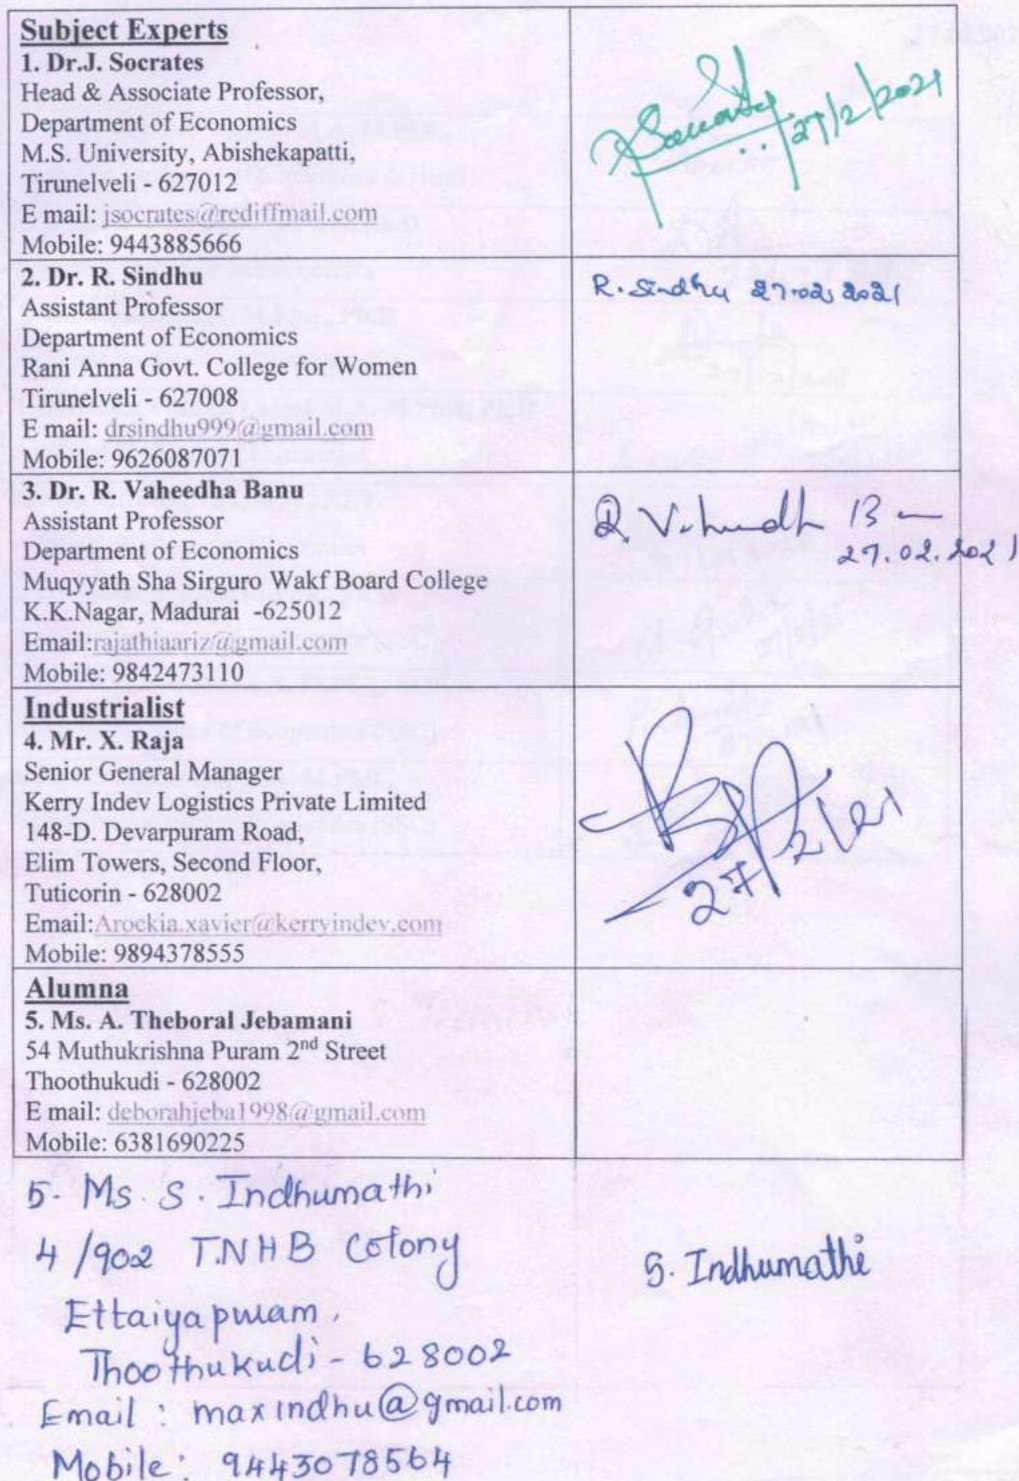 Subject Experts
1. Dr.J. Socrates
Head & Associate Professor,
Department of Economics
M.S. University, Abishekapatti,
Tirunelveli - 627012
E mail: jsocrates@rediffmail.com
Mobile: 9443885666
27/2/2021
2. Dr. R. Sindhu
Assistant Professor
Department of Economics
Rani Anna Govt. College for Women
Tirunelveli - 627008
E mail: drsindhu999@gmail.com
Mobile: 9626087071
R. Sindhu 27.02.2021
3. Dr. R. Vaheedha Banu
Assistant Professor
Department of Economics
Muqyyath Sha Sirguro Wakf Board College
K.K.Nagar, Madurai -625012
Email:rajathiaariz@gmail.com
Mobile: 9842473110
27.02.2021
Industrialist
4. Mr. X. Raja
Senior General Manager
Kerry Indev Logistics Private Limited
148-D. Devarpuram Road,
Elim Towers, Second Floor,
Tuticorin - 628002
Email:Arockia.xavier@kerryindev.com
Mobile: 9894378555
27/2/21
Alumna
5. Ms. A. Theboral Jebamani
54 Muthukrishna Puram 2nd Street
Thoothukudi - 628002
E mail: deborahjeba1998@gmail.com
Mobile: 6381690225
5. Ms. S. Indhumathi
4/902 T.N H B Colony
Ettaiyapuram,
Thoothukudi - 628002
Email : maxindhu@gmail.com
Mobile: 9443078564
S. Indhumathi